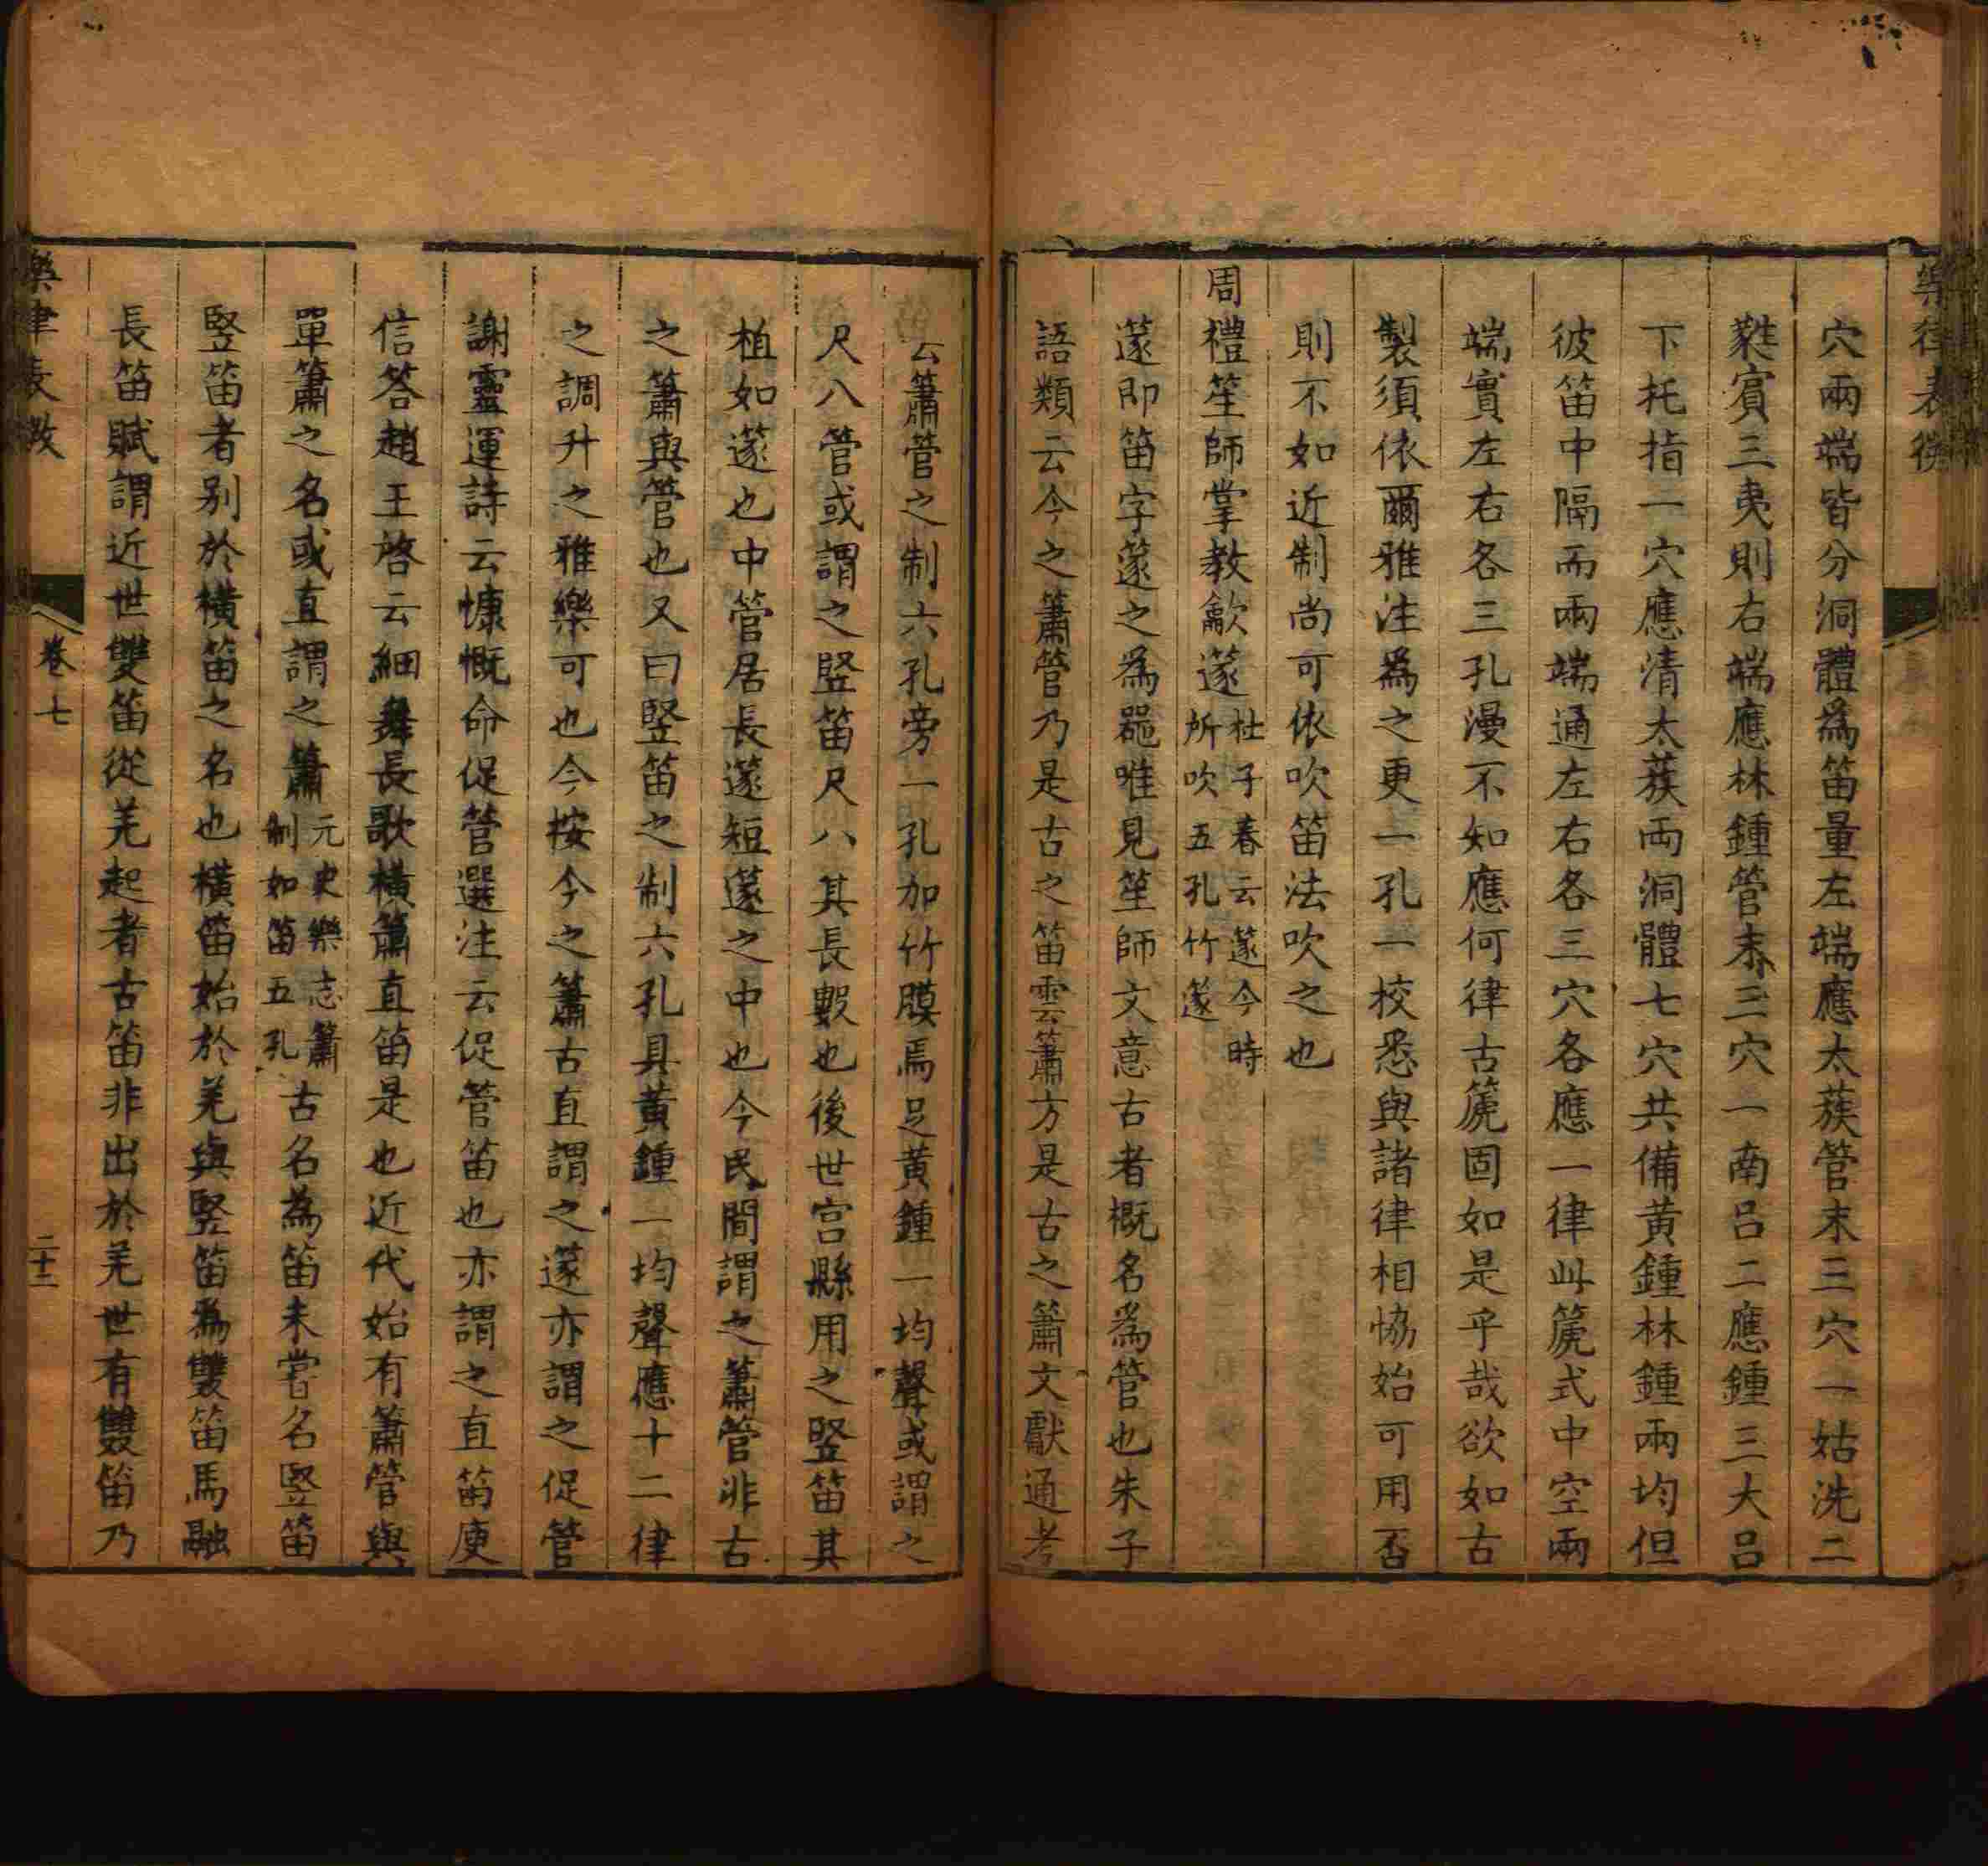 樂律表微
穴兩端皆分洞體爲笛量左端應太蔟管末三穴一姑洗二
蕤賓三夷則右端應林鍾管末三穴一南呂二應鍾三大呂
下托指一穴應清太蔟兩洞體七穴共備黃鍾林鍾兩均但
彼笛中隔而兩端通左右各三穴各應一律此篪式中空兩
端實左右各三孔漫不如應何律古篪固如是乎哉欲如古
製須依爾雅注爲之更一孔一校悉與諸律相協始可用否
則不如近制尚可依吹笛法吹之也
周禮笙師掌教龡篴杜子春云篴今時所吹五孔竹篴
篴即笛字篴之爲器唯見笙師文意古者概名爲管也朱子
語類云今之簫管乃是古之笛雲簫方是古之簫文獻通考
云簫管之制六孔旁一孔加竹膜焉足黃鍾一均聲或謂之
尺八管或謂之竪笛尺八其長數也後世宮縣用之竪笛其
植如篴也中管居長篴短篴之中也今民間謂之簫管非古
之簫與管也又曰竪笛之制六孔具黃鍾一均聲應十二律
之調升之雅樂可也今按今之簫古直謂之篴亦謂之促管
謝靈運詩云慷慨命促管選注云促管笛也亦謂之直笛庾
信答趙王啓云細舞長歌橫簫直笛是也近代始有簫管與
單簫之名或直謂之簫元史樂志簫制如笛五孔古名為笛未嘗名竪笛
竪笛者别於橫笛之名也橫笛始於羌與竪笛爲雙笛馬融
長笛賦謂近世雙笛從羌起者古笛非出於羌世有雙笛乃
樂律表微
卷七
二十三